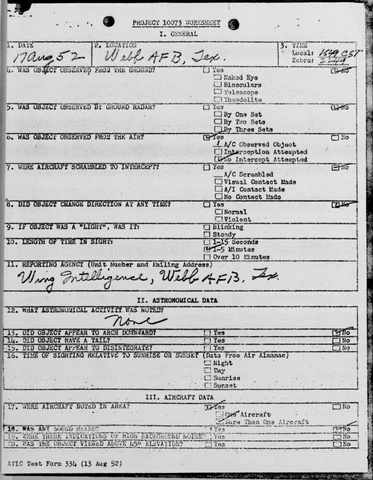 PROJECT 10073 WORKSHEET
I. GENERAL
1. DATE
17 Aug 52
2. LOCATION
Webb AFB, Tex.
3. TIME
Local: CST
Zebra:
4. WAS OBJECT OBSERVED FROM THE GROUND? Yes No
Naked Eye
Binoculars
Telescope
Theodolite
5. WAS OBJECT OBSERVED BY GROUND RADAR? Yes No
By One Set
By Two Sets
By Three Sets
6. WAS OBJECT OBSERVED FROM THE AIR? Yes No
A/C Observed Object
Interception Attempted
No Intercept Attempted
7. WERE AIRCRAFT SCRAMBLED TO INTERCEPT? Yes No
A/C Scrambled
Visual Contact Made
A/I Contact Made
No Contact Made
8. DID OBJECT CHANGE DIRECTION AT ANY TIME? Yes No
Normal
Violent
9. IF OBJECT WAS A "LIGHT", WAS IT: Blinking
Steady
10. LENGTH OF TIME IN SIGHT: 1-15 Seconds
1-5 Minutes
Over 10 Minutes
11. REPORTING AGENCY (Unit Number and Mailing Address)
Wing Intelligence, Webb AFB, Tex
II. ASTRONOMICAL DATA
12. WHAT ASTRONOMICAL ACTIVITY WAS NOTED?
None
13. DID OBJECT APPEAR TO ARCH DOWNWARD? Yes No
14. DID OBJECT HAVE A TAIL? Yes No
15. DID OBJECT APPEAR TO DISINTEGRATE? Yes No
16. TIME OF SIGHTING RELATIVE TO SUNRISE OR SUNSET (Data From Air Almanac)
Night
Day
Sunrise
Sunset
III. AIRCRAFT DATA
17. WERE AIRCRAFT NOTED IN AREA? Yes No
One Aircraft
More Than One Aircraft
18. WAS ANY SOUND HEARD? Yes No
19. WERE THERE INDICATIONS OF HIGH BACKGROUND NOISE? Yes No
20. WAS OBJECT VIEWED ABOVE 45° ELEVATION? Yes No
ATIC Test Form 334 (13 Aug 52)